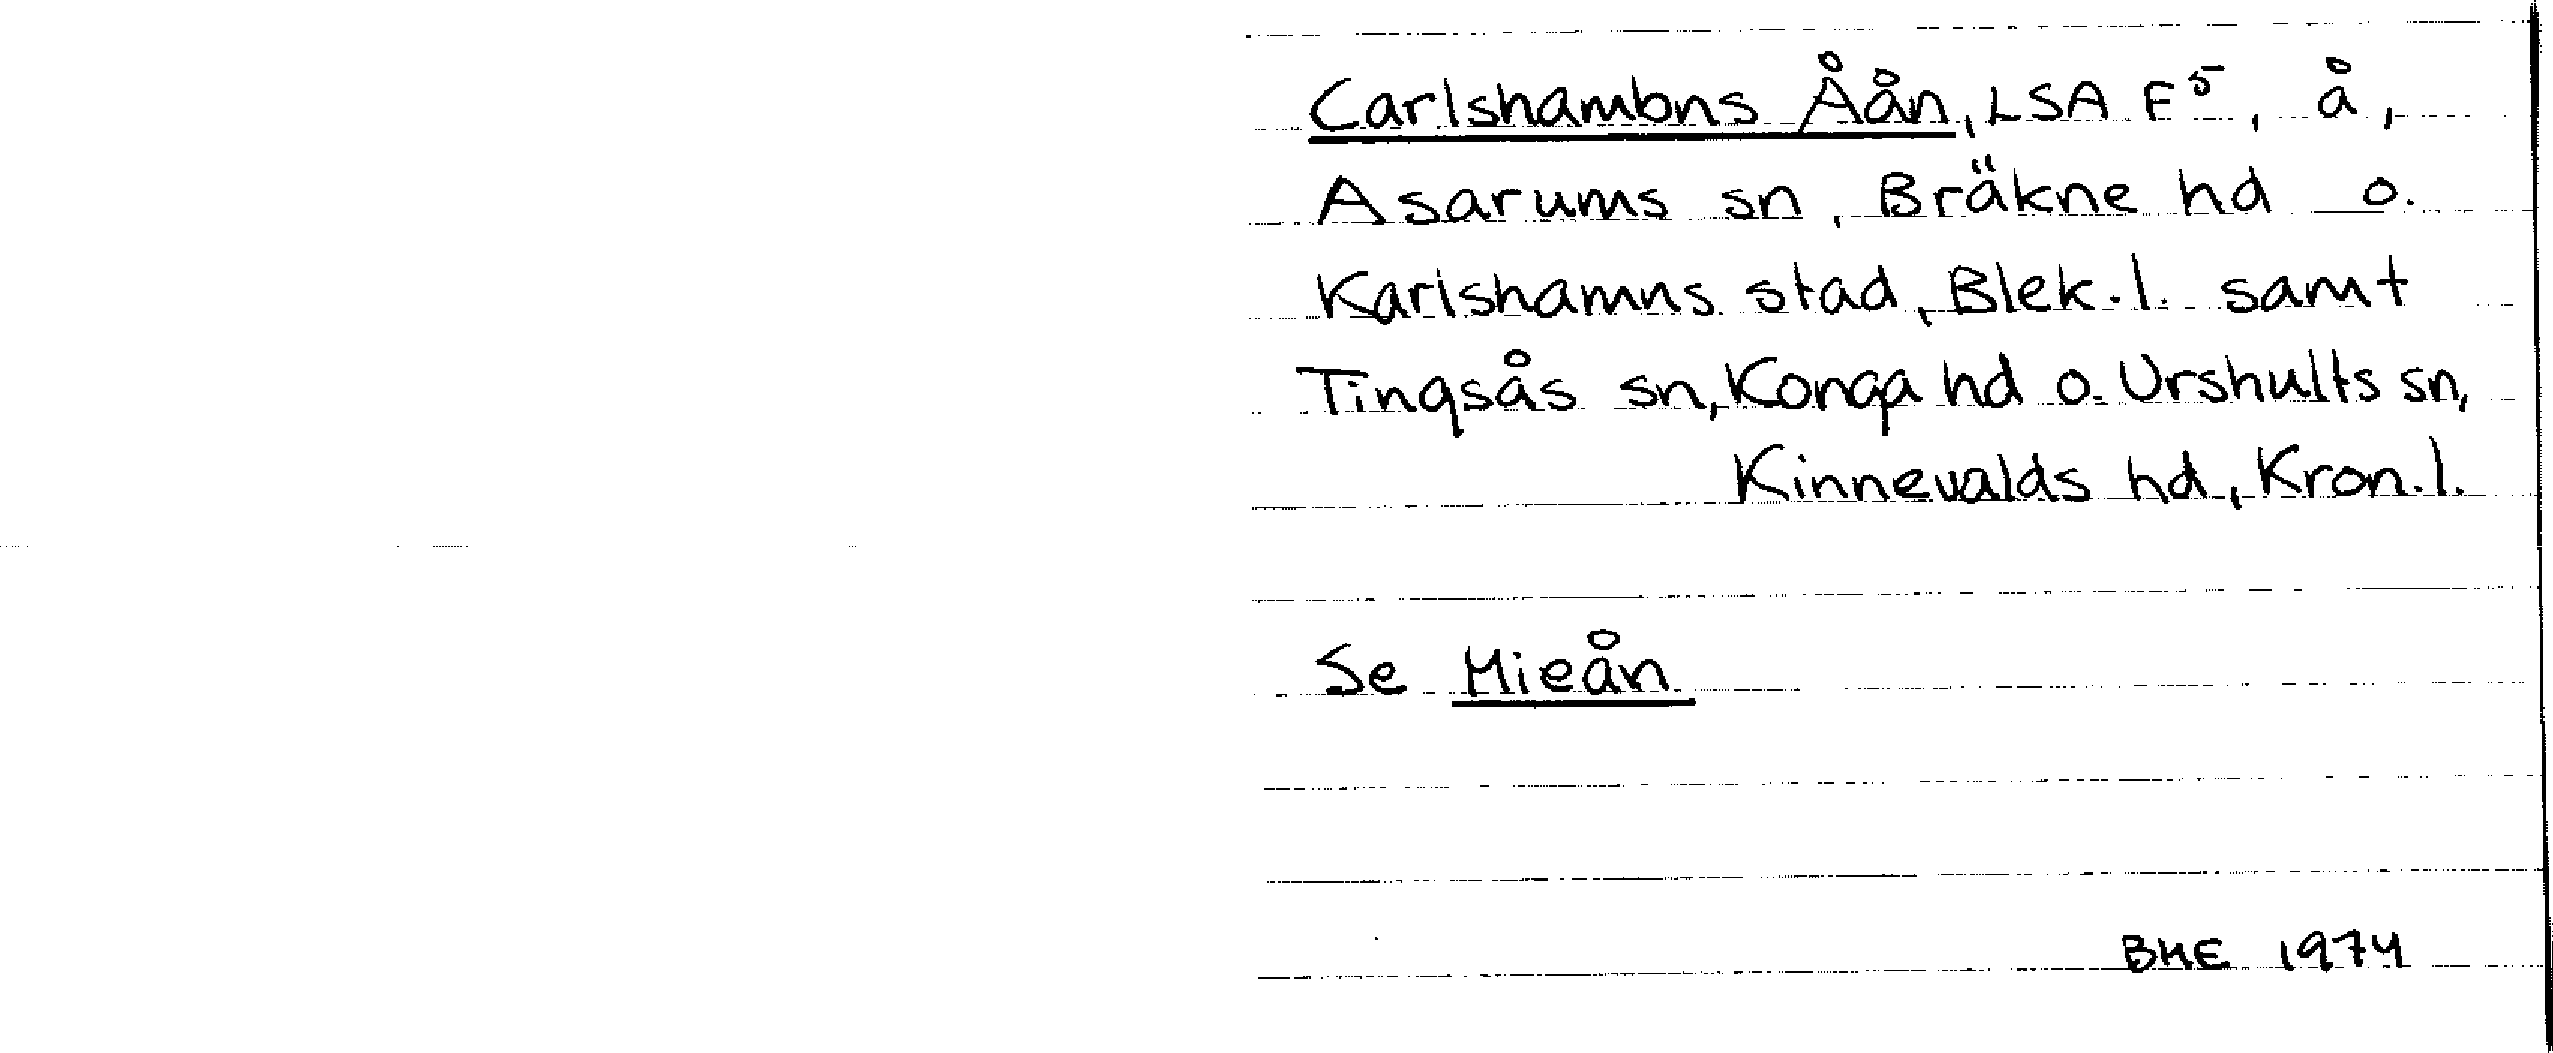 Carlshambns Åån, LSA F⁵, å,
Asarums sn, Bräkne hd o.
Karlshamns stad, Blek.l. samt
Tingsås sn, Konga hd o. Urshults sn,
Kinnevalds hd, Kron.l.
Se Mieån
BME 1974